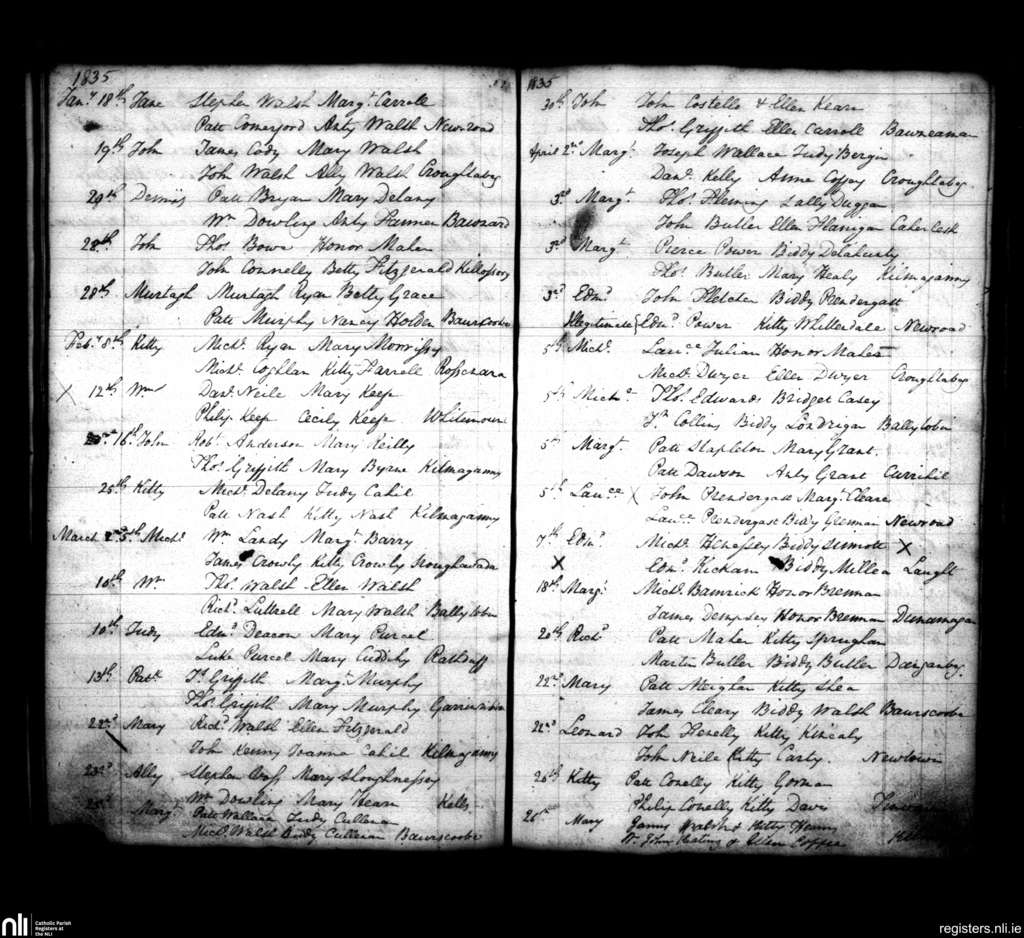 1835
Jany 18th Jane Stephen Walsh Margt Carroll
Patt Comerford Anty Walsh Newroad
19th John James Cody Mary Walsh
John Walsh Ally Walsh Croughtabeg
29th Dennis Patt Bryan Mary Delany
Wm Dowling Anty Bawnard
28th John Thos Bowe Honor Maher
John Connelly Betty Fitzgerald Killossory
28th Murtagh Murtagh Ryan Betty Grace
Patt Murphy Nancy Holden Baurscoobe
Feby 8th Kitty Michl Ryan Mary Morrissy
Michl Coghlan Kitty Farrell Rossenara
X 12th Wm Danl Neile Mary Keefe
Philip Keefe Cecily Keefe Whitesmoun
16th John Robt Anderson Mary Reilly
Thos Griffith Mary Byrne Kilmaganny
25th Kitty Michl Delany Judy Cahil
Patt Nash Kitty Nash Kilmaganny
March 5th Michl Wm Landy Margt Barry
James Crowly Kitty Crowly
10th Wm Thos Walsh Ellen Walsh
Richd Luttrell Mary Walsh Ballytobin
10th Judy Edmd Deacon Mary Purcel
Luke Purcel Mary Cuddihy Rathduff
13th Patk Js Griffith Margt Murphy
Thos Griffith Mary Murphy
22nd Mary Richd Walsh Ellen Fitzgerald
John Kenny Joanna Cahil Kilmaganny
23rd Ally Stephen Mary Shoughnessy
Wm Dowling Mary Hearn Kells
25th Margt Patt Wallace Judy Cullenan
Michl Walsh Judy Cullenan Baurscoobe
1835
30th John John Costello & Ellen Kearn
Thos Griffith Ellen Carroll Bawneaman
April 2nd Margt Joseph Wallace Judy Bergin
Danl Kelly Anne Coffey Croughtabeg
3d Margt Thos Fleming Sally Duggan
John Butler Ellen Flanigan Caherlesk
3d Margt Pierce Power Biddy Delahunty
Thos Butler Mary Healy Kilmaganny
3d Edmd John Fletcher Biddy Prendergast
Illegitimate Edmd Power Kitty Whittendale Newroad
5th Michl Lawce Julian Honor Maher
Michl Dwyer Ellen Dwyer Croughtabeg
5th Michl Thos Edwards Bridget Casey
Js Collins Biddy Londrigan Ballytobin
5th Margt Patt Stapleton Mary Grant
Patt Dawson Anty Grant Currihil
5th Lawce X John Prendergast Margt Cleare
Lawce Prendergast Biddy Newroad
7th Edmd Michl Henessey Biddy Sinnott X
X Edmd Kickam Biddy Millea
18th Margt Michl Bamrick Honor Brennan
James Dempsey Honor Brennan Dunamagan
20th Richd Patt Maher Kitty Sprughan
Martin Butler Biddy Butler Danganbeg
22nd Mary Patt Meighan Kitty Shea
James Cleary Biddy Walsh Baurscoobe
22d Leonard John Henelly Kitty Kinealy
John Neile Kitty Carty Newtown
26th Kitty Patt Conelly Kitty Gorman
Philip Conelly Kitty Davis
26th Mary James Walsh & Kitty Henny
John Keating & Ellen
nli Catholic Parish
Registers at
the NLI
registers.nli.ie